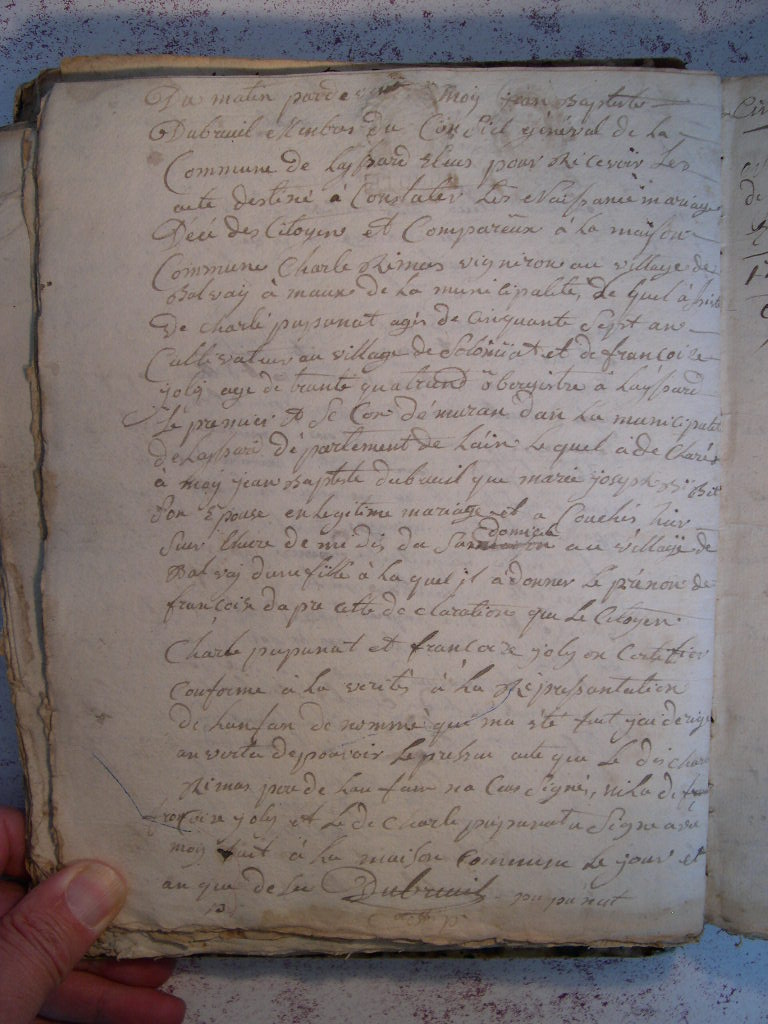 Du matin pardevent moy jean Baptiste
Dubreuil Membre du Conseil général de la
Commune de Lagssard Elus pour Recevoir les
acte destiné à Constater les Naissance mariage
Décé des Citoyen et Comparëux à la maison
Commune Charle Rimas vigniron au village de
Balvay à maux de la municipalité, le quel assisté
de Charle pupunat agés de Cinquante Sept an
Cultivateur au village de et de françoise
joly age de trante quatrand obergistre a Lagssard
le premier et Se Con démuran dan la municipalité
de Lagssard département de Lain le quel a de Claré
a moy jean Baptiste dubreuil que marie joseph
Son Epouse en legitime mariage et a Couchés hier
Sur lheure de midis du San domicile au village de
Balvaj dune fille à la quel il a donner le prénon de
francoise dapre cette de claration que le Citoyen
Charle pupunat et francoise joly on Certifier
Conforme à la verité à la Représsantation
de Lanfan de nommé qui ma été fait jai dérigé
an vertu de pouvoir le pressan acte que le dis Charle
Rimas pere de Lanfam na Cas Signé, ni la de
francoise joly et le de Charle pupunat a Signe avec
moy fait à la maison Commune le jour et
an que de Su Dubreuil pupunat